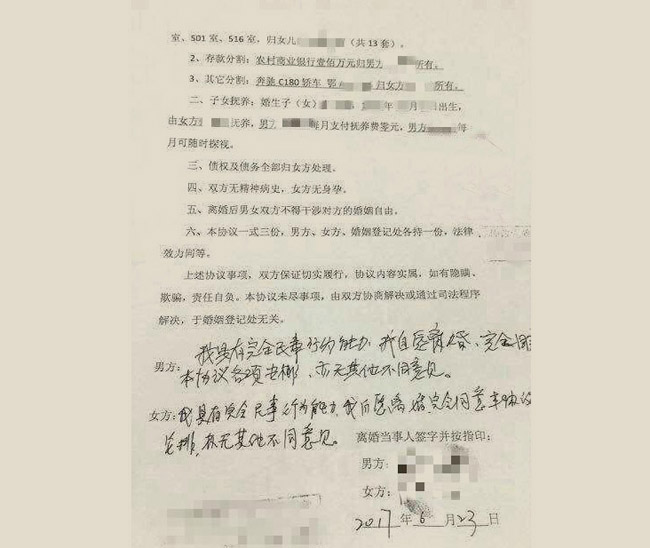 室、501 室、516 室、归女儿 （共 13 套）。
2、存款分割：农村商业银行壹佰万元归男方 所有。
3、其它分割：奔驰 C180 轿车 鄂 归女方 所有。
二、子女抚养：婚生子（女） ， 年 月 日出生，
由女方 抚养，男方 每月支付抚养费零元，男方 每
月可随时探视。
三、债权及债务全部归女方处理。
四、双方无精神病史，女方无身孕。
五、离婚后男女双方不得干涉对方的婚姻自由。
六、本协议一式三份，男方、女方、婚姻登记处各持一份，法律
效力同等。
上述协议事项、双方保证切实履行，协议内容实属，如有隐瞒、
欺骗，责任自负。本协议未尽事项，由双方协商解决或通过司法程序
解决，于婚姻登记处无关。
我具有完全民事行为能力，我自愿离婚、完全同意
男方：本协议各项安排，亦无其他不同意见。
女方：我具有完全民事行为能力，我自愿离婚，完全同意本协议
安排，亦无其他不同意见。
离婚当事人签字并按指印：
男方：
女方：
2017 年 6 月 23 日